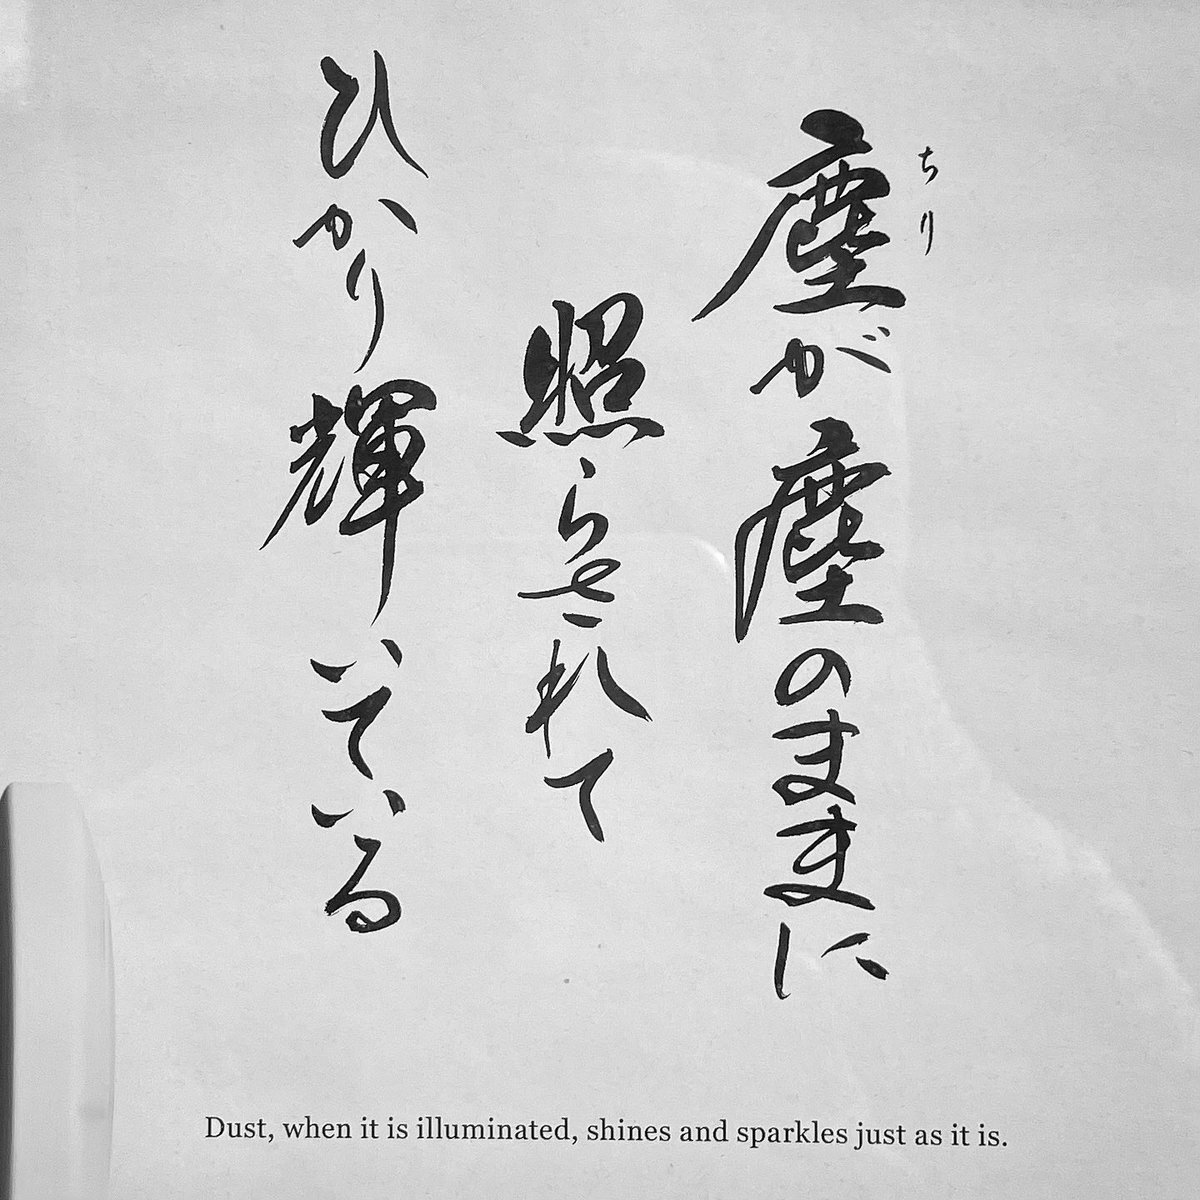 塵が塵のままに
ちり
照らされて
ひかり輝いている
Dust, when it is illuminated, shines and sparkles just as it is.